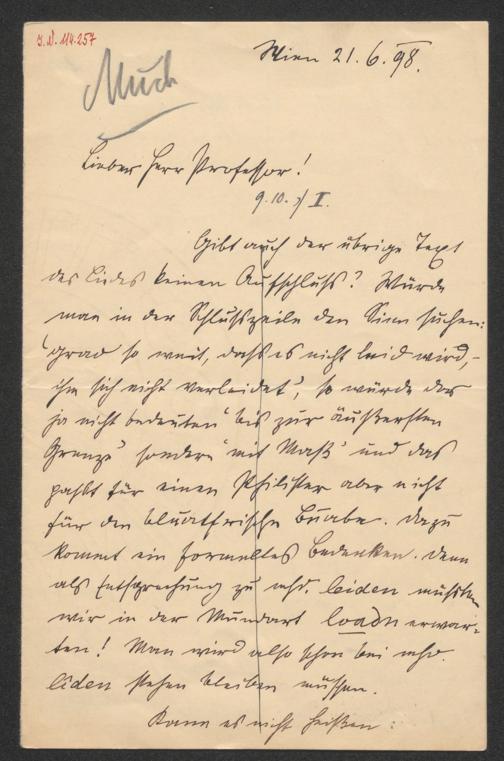 I.N. 114.257
Much
Wien 21.6.98.
Lieber Herr Professor!
9.10. I.
Gibt auch der übrige Text
des Liedes keinen Aufschluß? Würde
man in der Schlußzeile den Sinn suchen:
'grad so weit, daß es nicht leid wird,-
ihm sich nicht verleidet', so würde das
ja nicht bedeuten 'bis zur äußersten
Grenze' sondern 'mit Maß' und das
paßt für einen Philister aber nicht
für den bluatfrische Buabe. Dazu
kommt ein formelles Bedenken. Denn
als Entsprechung zu mhd. leiden müßten
wir in der Mundart loadn erwar-
ten! Man wird also schon bei mhd.
liden stehen bleiben müssen.
Kann es nicht heißen: